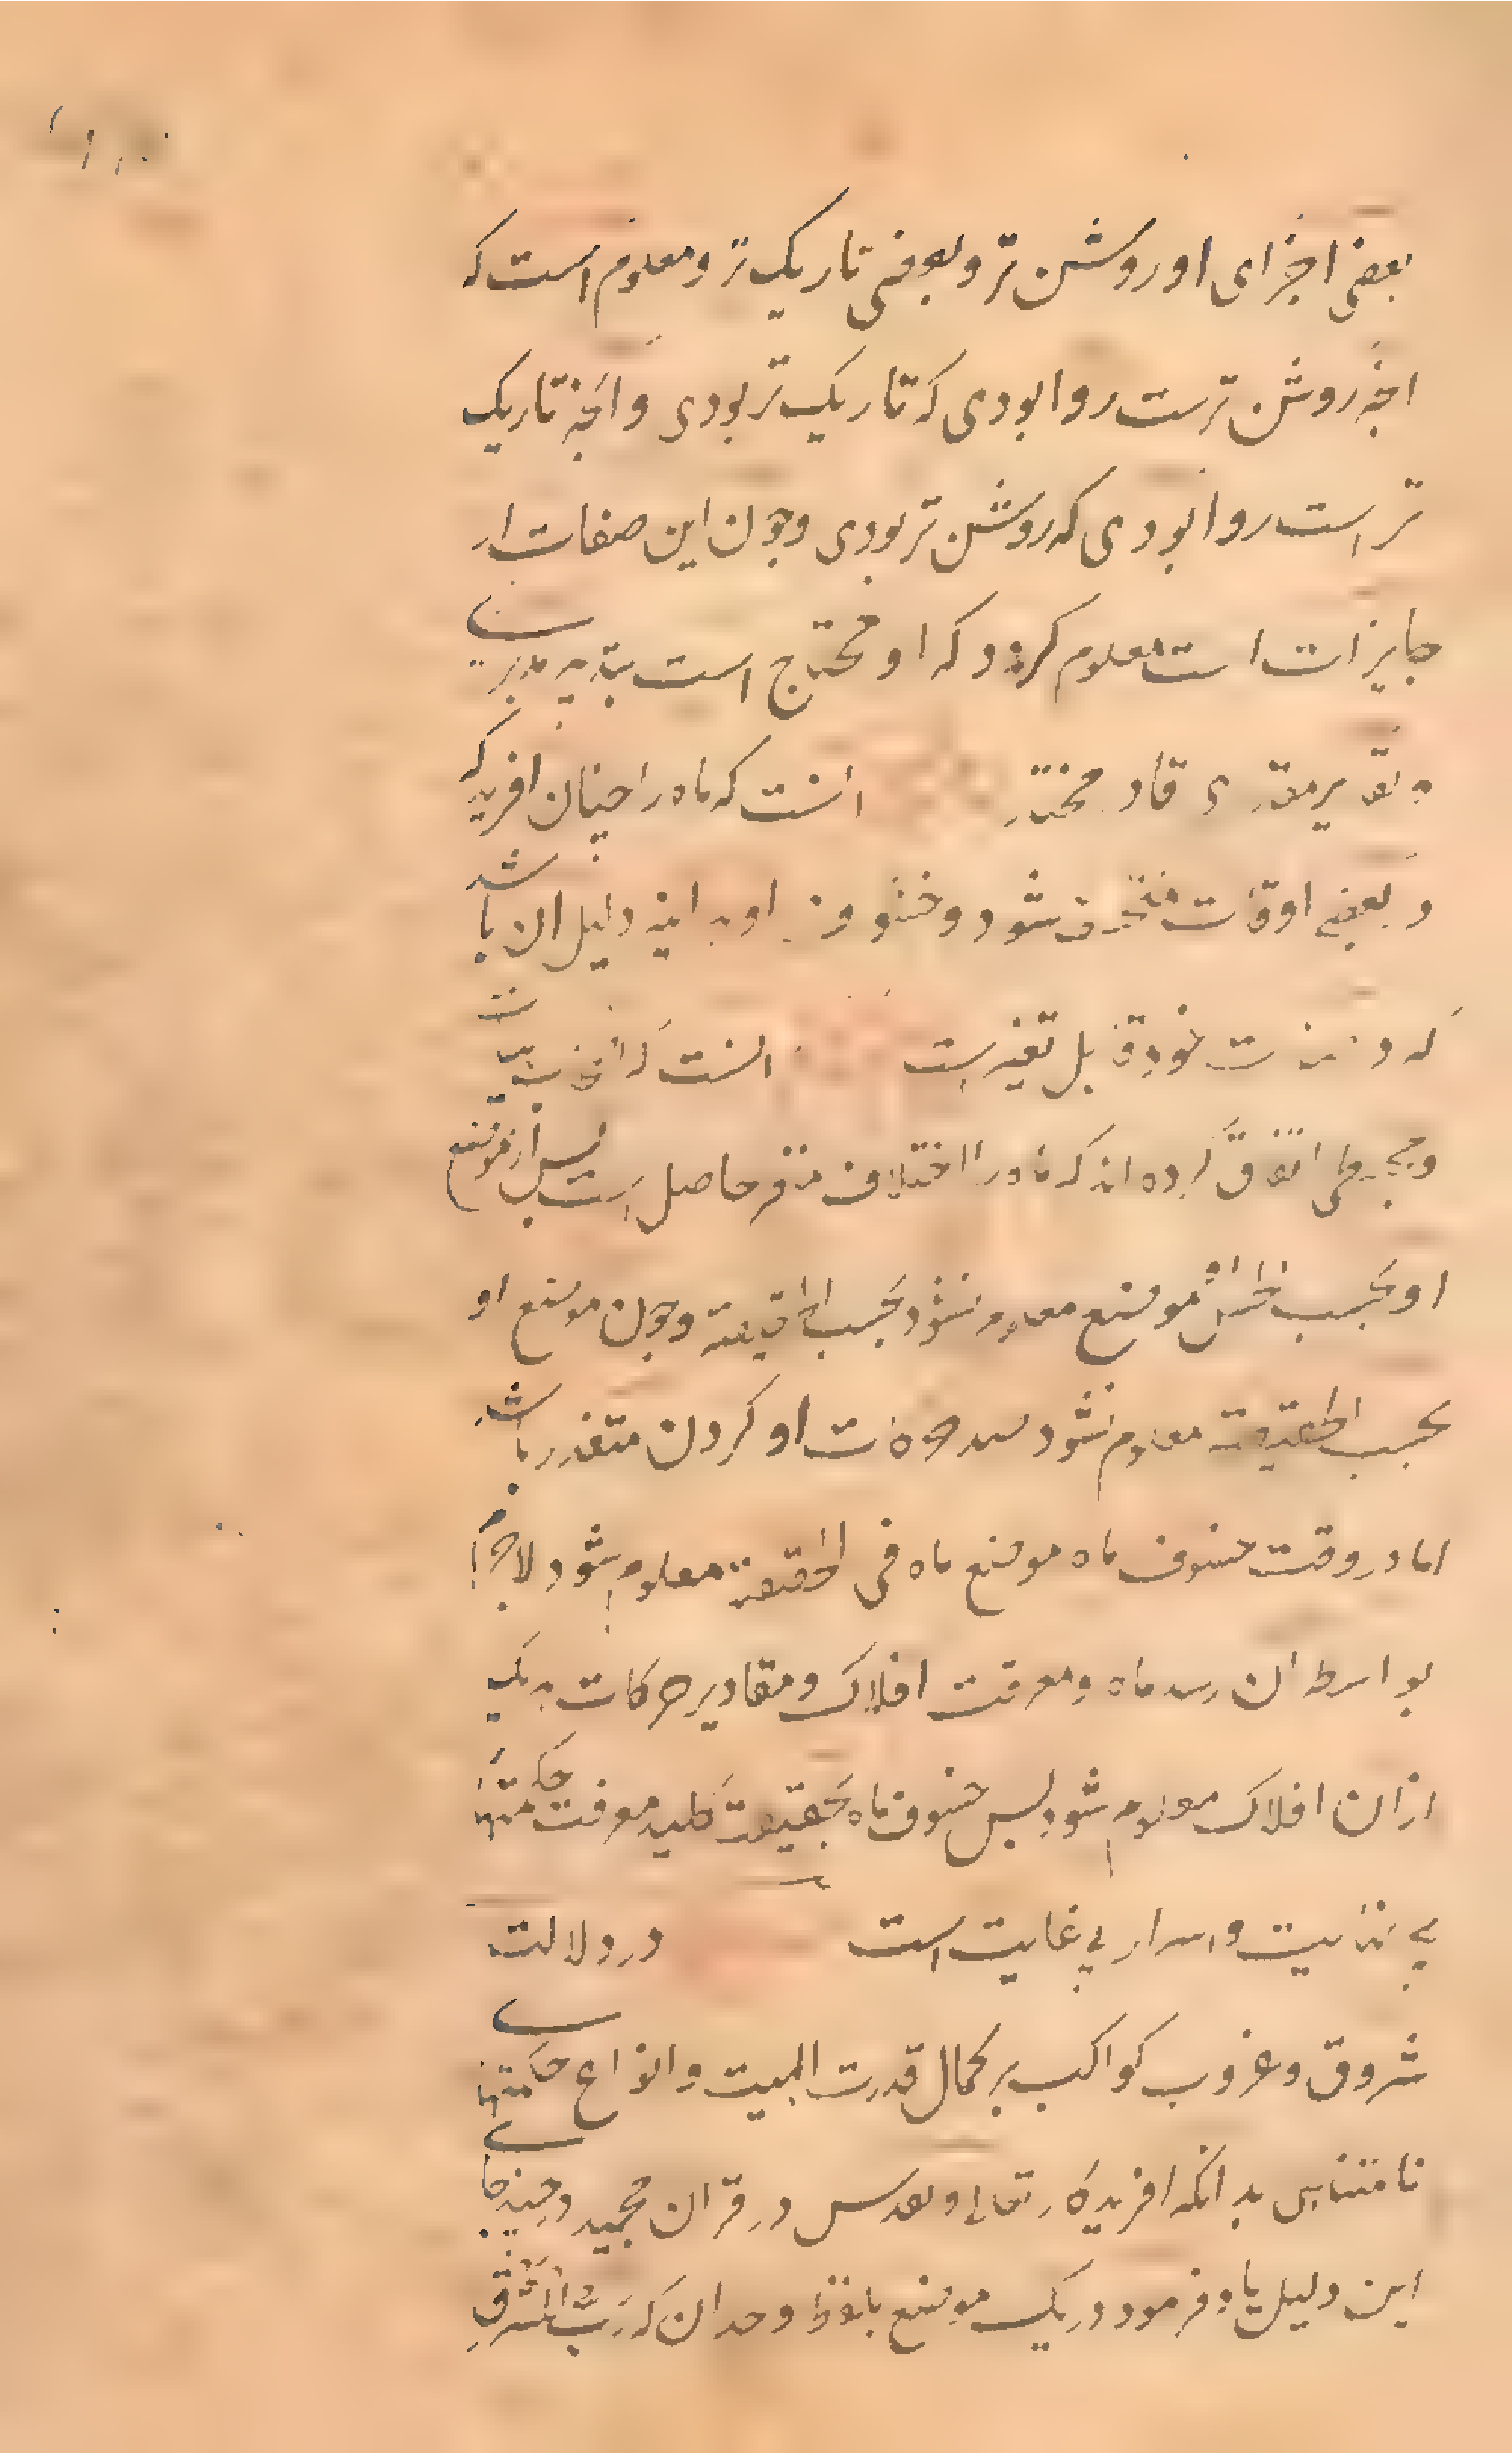 بعضی اجزای او روشن تر و بعضی تاریک تر و معلوم است که
انچه روشن ترست روا بودی که تاریک تر بودی و انچه تاریک
تر است روا بودی که روشن تر بودی و چون این صفات از
جایزات است معلوم کردد که او محتاج است بتدبیر مدبری
و تقدیر مقدری قادر مختار انست که ماه را چنان افرید که
در بعضی اوقات منخسف شود و خسوف او دلیل ان باشد
که در ذات خود قابل تغیر است انست که
و مجسطی اتفاق کرده اند که ماه را اختلاف منظر حاصل است پس از موضع
او بحسب موضع معلوم نشود بحسب الحقیقة و چون موضع او
بحسب الحقیقة معلوم نشود رصد حرکات او کردن متعذر باشد
اما در وقت خسوف ماه موضع ماه فی الحقیقة معلوم شود لاجرم
بواسطه ان رصد ماه و معرفت افلاک و مقادیر حرکات هر یک
از ان افلاک معلوم شود پس خسوف ماه بحقیقت کلید معرفت حکمتها
بی نهایت و اسرار بی غایت است در دلالت
شروق و غروب کواکب بر کمال قدرت الهیت و انواع حکمتهای
نامتناهی بدانکه افریدکار تعالی و تقدس در قران مجید در چند جای
این دلیل یاد فرمود در یک موضع بلفظ وحدان که رَبُّ الْمَشْرِقِ